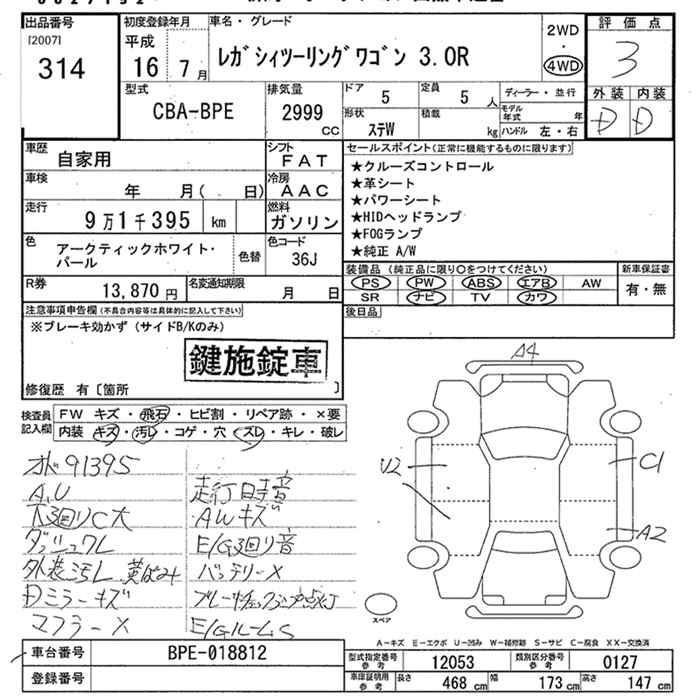 出品番号
[2007]
314
初度登録年月
平成
16 7月
車名・グレード
レガシィツーリングワゴン 3.0R
2WD
・
4WD
評価点
3
外装 内装
D D
型式
CBA-BPE
排気量
2999
CC
ドア
5
定員
5 人
ディーラー・並行
形状
ステW
積載
kg
モデル年式 年
ハンドル 左・右
車歴
自家用
シフト
FAT
車検
年 月( 日)
冷房
AAC
走行
9万1千395 km
燃料
ガソリン
色
アークティックホワイト・
パール
色替
色コード
36J
R券
13,870 円
名変通知期限
月 日
セールスポイント(正常に機能するものに限ります)
★クルーズコントロール
★革シート
★パワーシート
★HIDヘッドランプ
★FOGランプ
★純正 A/W
装備品 (純正品に限り○をつけてください)
PS PW ABS エアB AW
SR ナビ TV カワ
新車保証書
有・無
後日品
注意事項申告欄(不具合内容等は具体的に記入して下さい)
※ブレーキ効かず(サイドB/Kのみ)
鍵施錠車
修復歴 有〔箇所 〕
検査員
記入欄
FW キズ・飛石・ヒビ割・リペア跡・×要
内装 キズ・汚レ・コゲ・穴・スレ・キレ・破レ
オド91395
A.U
下廻りC大
ダッシュウレ
外装汚レ、黄ばみ
Dミラーキズ
マフラーX
走行時音
AWキズ
E/G廻り音
バッテリーX
ブレーキチェックランプ点灯
E/Gルーム S
A4
U2
C1
A2
スペア
A-キズ E-エクボ U-凹み W-補修跡 S-サビ C-腐食 XX-交換済
車台番号
BPE-018812
登録番号
型式指定番号
参考
12053
類別区分番号
参考
0127
車庫証明用
参考
長さ 468 cm 幅 173 cm 高さ 147 cm